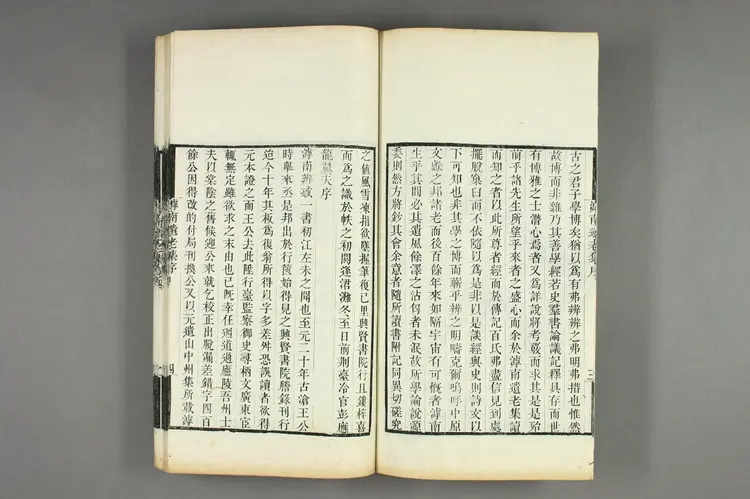 滹南遺老集序
三
古之君子學博矣猶以爲有弗辨辨之弗明弗措也惟然
故博而非雜乃其善學經若史羣書論議記釋具存而世
有博雅之士潛心焉者又爲詳說將考覈而求其是是殆
前乎諸先生所望乎來者之盛心而余於滹南遺老集讀
而知之者以此所尊者經而於傳記百氏弗盡信見到處
擺脫窠臼而不依隨以爲是非以是談經與史則詩文以
下可知也非其學之博而蘄乎辨之明疇克爾嗚呼中原
文獻之邦諸老而後百餘年來如隔宇宙有可慨者滹南
生乎其間必其遺風餘澤之沾匄者未泯故所學論說源
委則然方將鈔其會余意者隨所讀書附記同異切磋究
之値風雪凍指欲墜握筆復已里興賢書院行且鏤梓喜
而爲之識於帙之初閼逢涒灘冬至日前荊臺冷官彭應
龍翼夫序
滹南辨惑一書初江左未之聞也至元二十年古滄王公
時舉來丞是邦出於行篋始得見之興賢書院謄錄刊行
迨今十年其板爲復翁所得以字多差舛恐誤讀者欲得
元本證之而王公去此陞行臺監察御史尋柄文廣東宦
轍無定雖欲求之末由也已既幸任迴道過廬陵吾州士
夫以棠陰之舊候迎公來就乞校正出脫漏差錯字四百
餘公因得改的付局刊換公又以元遺山中州集所載滹
滹南遺老集序
四